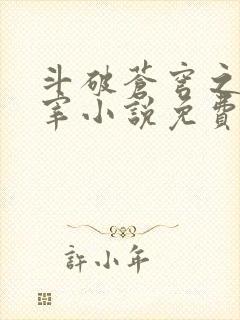 斗破蒼穹之
宰小說免費
許小年